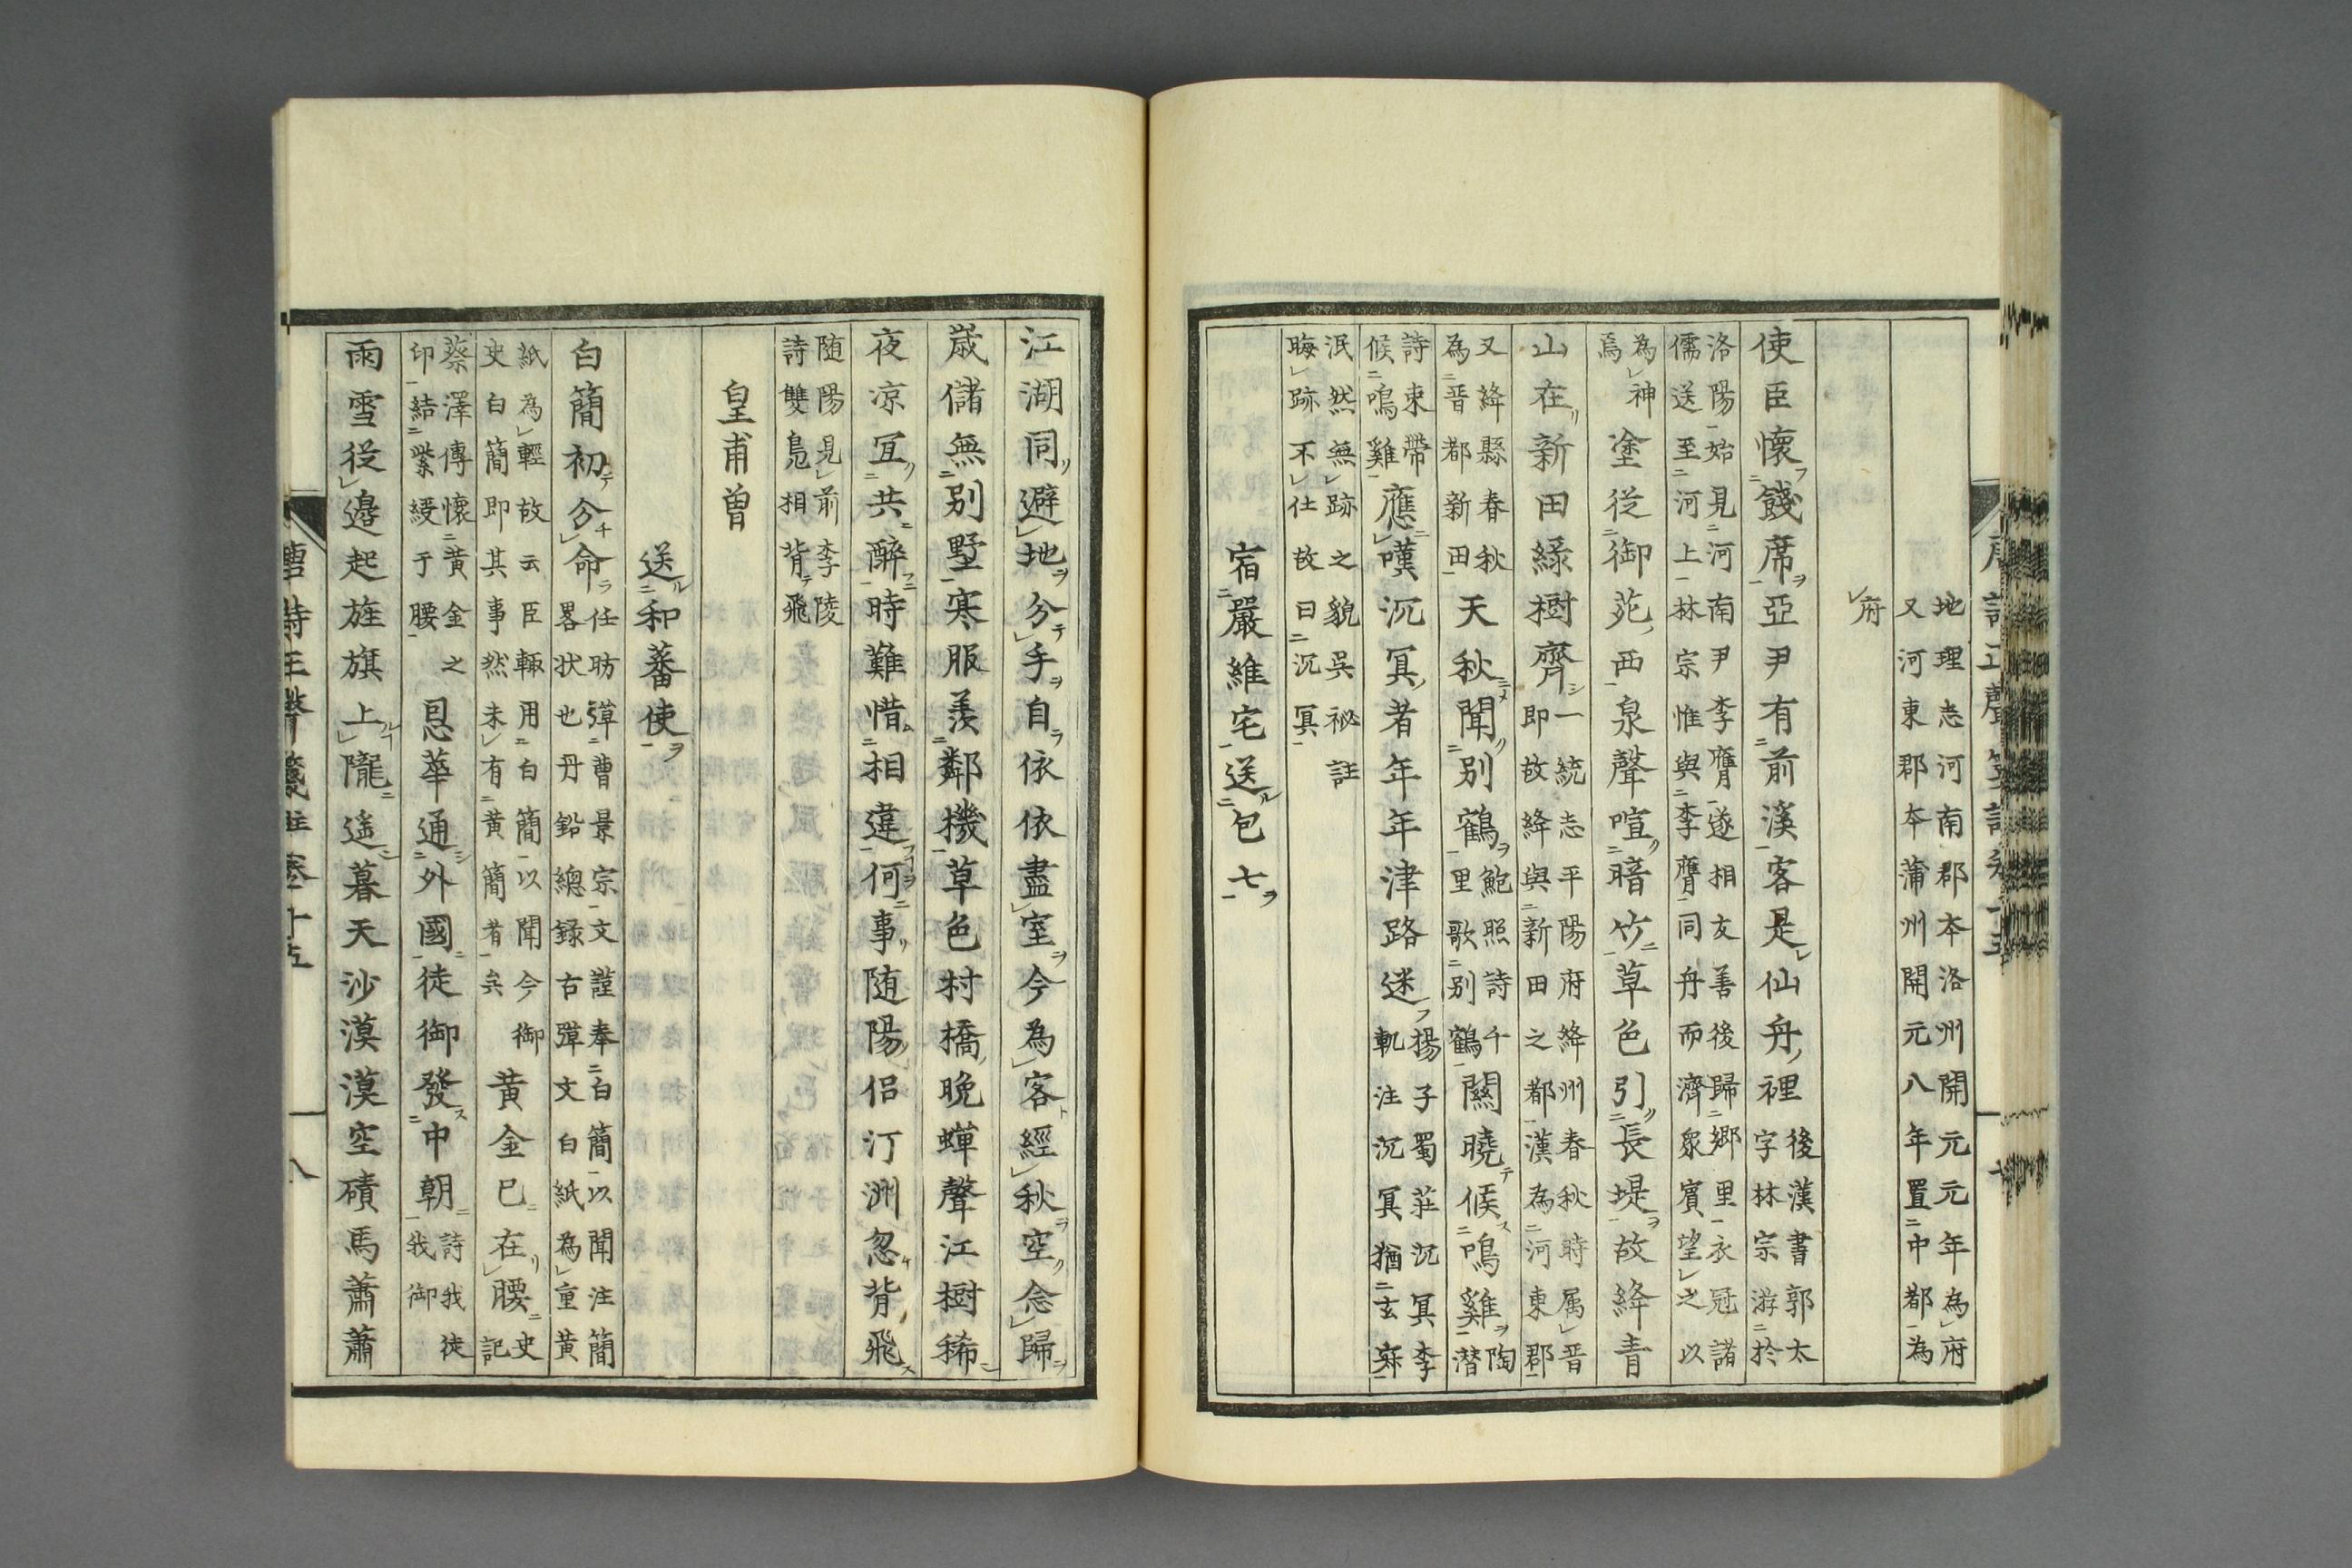 地理志河南郡本洛州開元元年為府
又河東郡本蒲州開元八年置中都為
府
使臣懷餞席亞尹有前溪客是仙舟裡
後漢書郭太
字林宗游於
洛陽始見河南尹李膺遂相友善後歸鄉里衣冠諸
儒送至河上林宗惟與李膺同舟而濟眾賓望之以
為神
焉
塗從御苑西泉聲喧暗竹草色引長堤故絳青
山在新田緑樹齊
一統志平陽府絳州春秋時属晋
即故絳與新田之都漢為河東郡
又絳縣春秋
為晋都新田
天秋聞別鶴
鮑照詩千
里歌別鶴
關曉候鳴雞
陶
潛
詩束帶
候鳴雞
應嘆沉冥者年年津路迷
楊子蜀莊沉冥李
軌注沉冥猶玄寂
泯然無跡之貌吳祕註
晦跡不仕故曰沉冥
宿嚴維宅送包七
江湖同避地分手自依依盡室今為客經秋空念歸
歲儲無別墅寒服羨鄰機草色村橋晚蟬聲江樹稀
夜凉冝共醉時難惜相違何事随陽侶汀洲忽背飛
随陽見前李陵
詩雙鳧相背飛
皇甫曾
送和蕃使
白簡初分命
任昉彈曹景宗文謹奉白簡以聞注簡
畧状也丹鉛總録古彈文白紙為重黄
紙為輕故云臣輙用白簡以聞今御
史白簡即其事然未有黄簡者矣
黄金巳在腰
史
記
蔡澤傳懷黄金之
印結紫綬于腰
恩華通外國徒御發中朝
詩我徒
我御
雨雪從邉起旌旗上隴遥暮天沙漠漠空磧馬蕭蕭